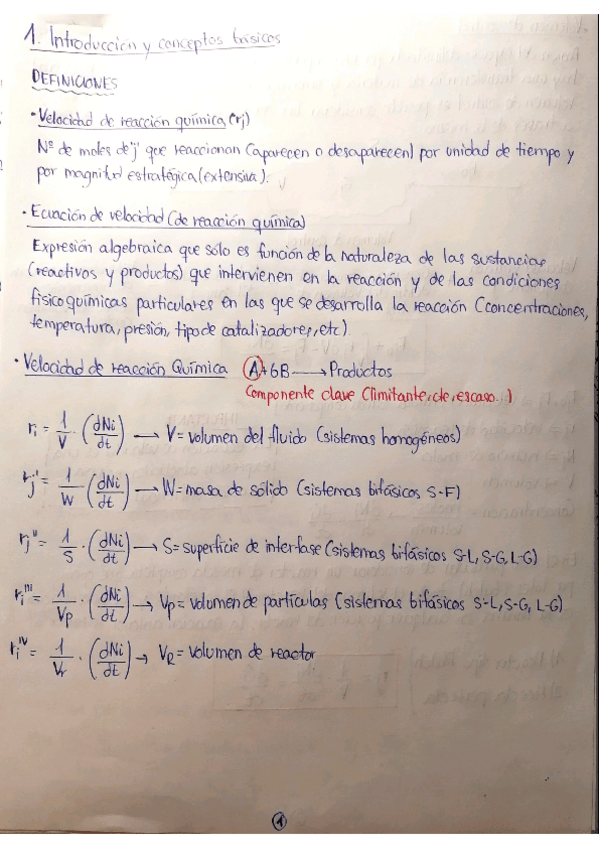 1. Introducción y conceptos básicos
DEFINICIONES
· Velocidad de reacción química (rj)
Nº de moles de 'j' que reaccionan (aparecen o desaparecen) por unidad de tiempo y
por magnitud estratégica (extensiva).
· Ecuación de velocidad (de reacción química)
Expresión algebraica que sólo es función de la naturaleza de las sustancias
(reactivos y productos) que intervienen en la reacción y de las condiciones
fisicoquímicas particulares en las que se desarrolla la reacción (concentraciones,
temperatura, presión, tipo de catalizadores, etc)
· Velocidad de reacción Química A + 6B → Productos
Componente clave (limitante, cte, escaso..)
ri = 1/V · (dNi/dt) → V = volumen del fluido (sistemas homogéneos)
rj' = 1/W · (dNi/dt) → W = masa de sólido (sistemas bifásicos S-F)
rj'' = 1/S · (dNi/dt) → S = superficie de interfase (sistemas bifásicos S-L, S-G, L-G)
ri''' = 1/Vp · (dNi/dt) → Vp = volumen de partículas (sistemas bifásicos S-L, S-G, L-G)
ri^IV = 1/Vr · (dNi/dt) → VR = volumen de reactor
1